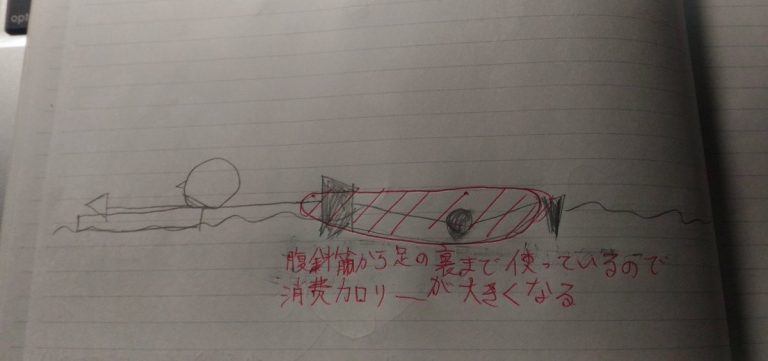 opt
腹斜筋から足の裏まで使っているので
消費カロリーが大きくなる